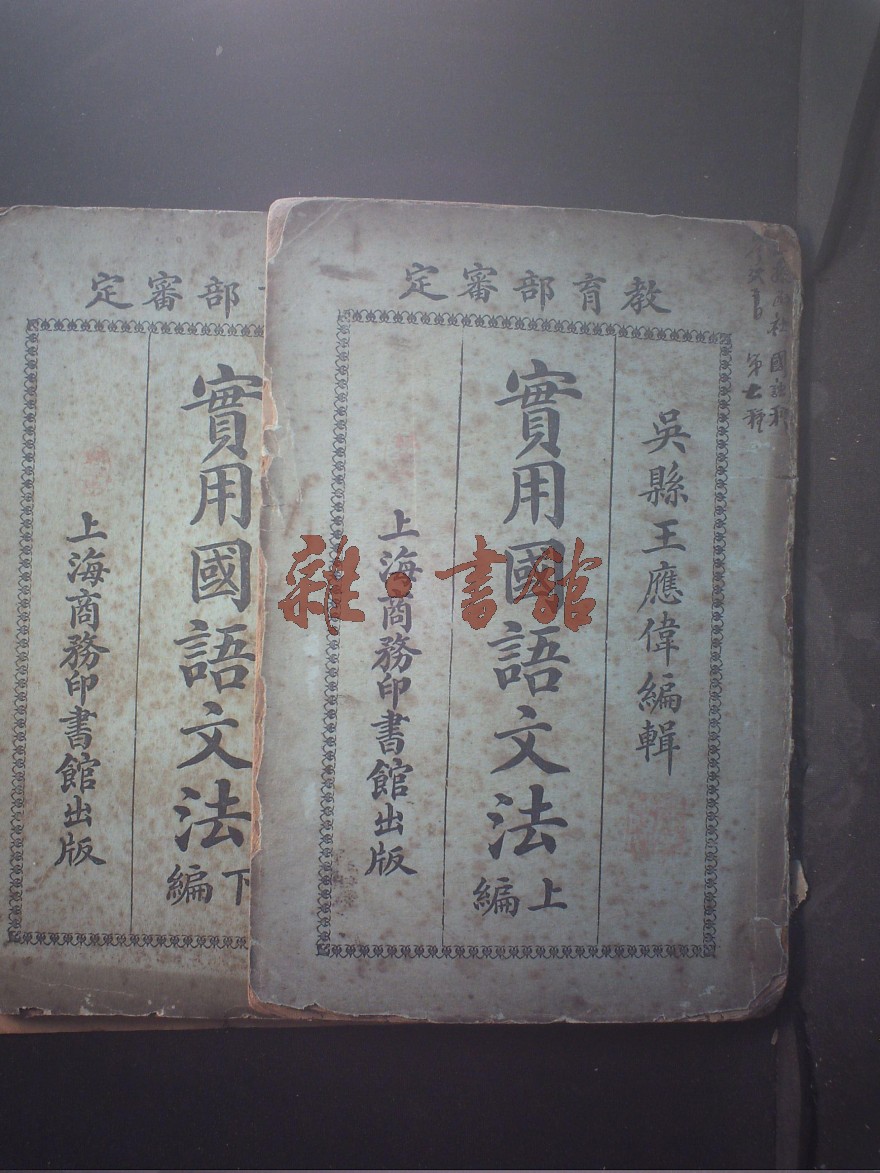 教育部審定
吳縣王應偉編輯
實用國語文法
上編
上海商務印書館出版
國語科
第七種
部審定
實用國語文法
下編
上海商務印書館出版
雜·書館